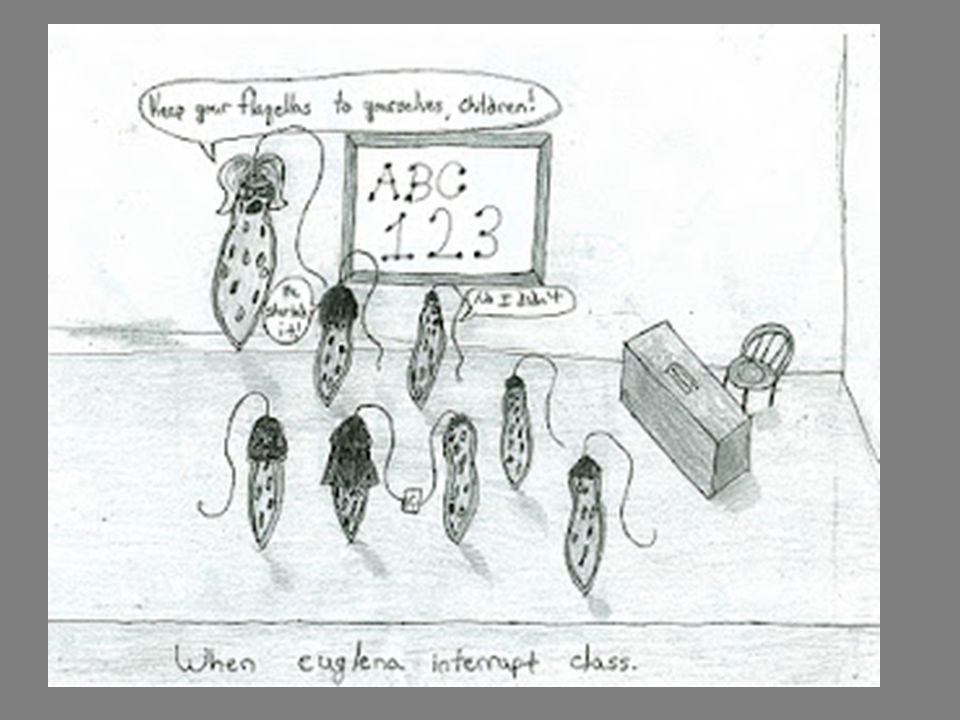 Keep your flagellas to yourselves, children!
ABC
123
He
started
it!
No I didn't
When euglena interrupt class.